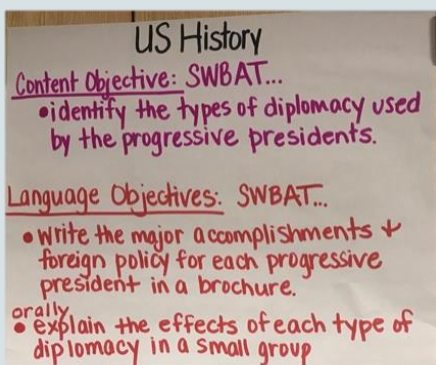 US History
Content Objective: SWBAT...
•identify the types of diplomacy used
by the progressive presidents.
Language Objectives: SWBAT...
•Write the major accomplishments +
foreign policy for each progressive
president in a brochure.
orally
•explain the effects of each type of
diplomacy in a small group